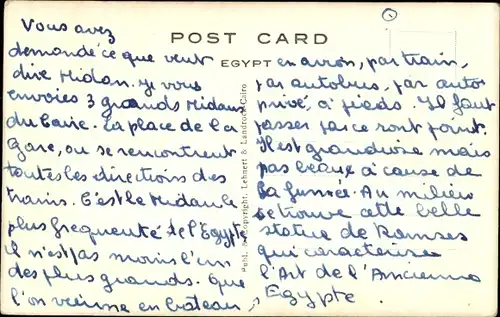 POST CARD
EGYPT
Vous avez
demandé ce que veut
dire Midan. Je vous
envoies 3 grands Midans
du Caire. La place de la
Gare, ou se rencontrent
toutes les directions des
trains. C'est le Midan le
plus frequenté de l'Egypte
il n'est pas moins l'un
des plus grands. Que
l'on vienne en bateau,
en avion, par train,
par autobus, par auto
privé, a pieds. Il faut
passer par ce rond point.
Il est grandiose mais
pas beau à cause de
la fumée. Au milieu
se trouve cette belle
statue de Ramses
qui caracterise
l'Art de l'Ancienne
Egypte
Publ. & Copyright. Lehnert & Landrock, Cairo